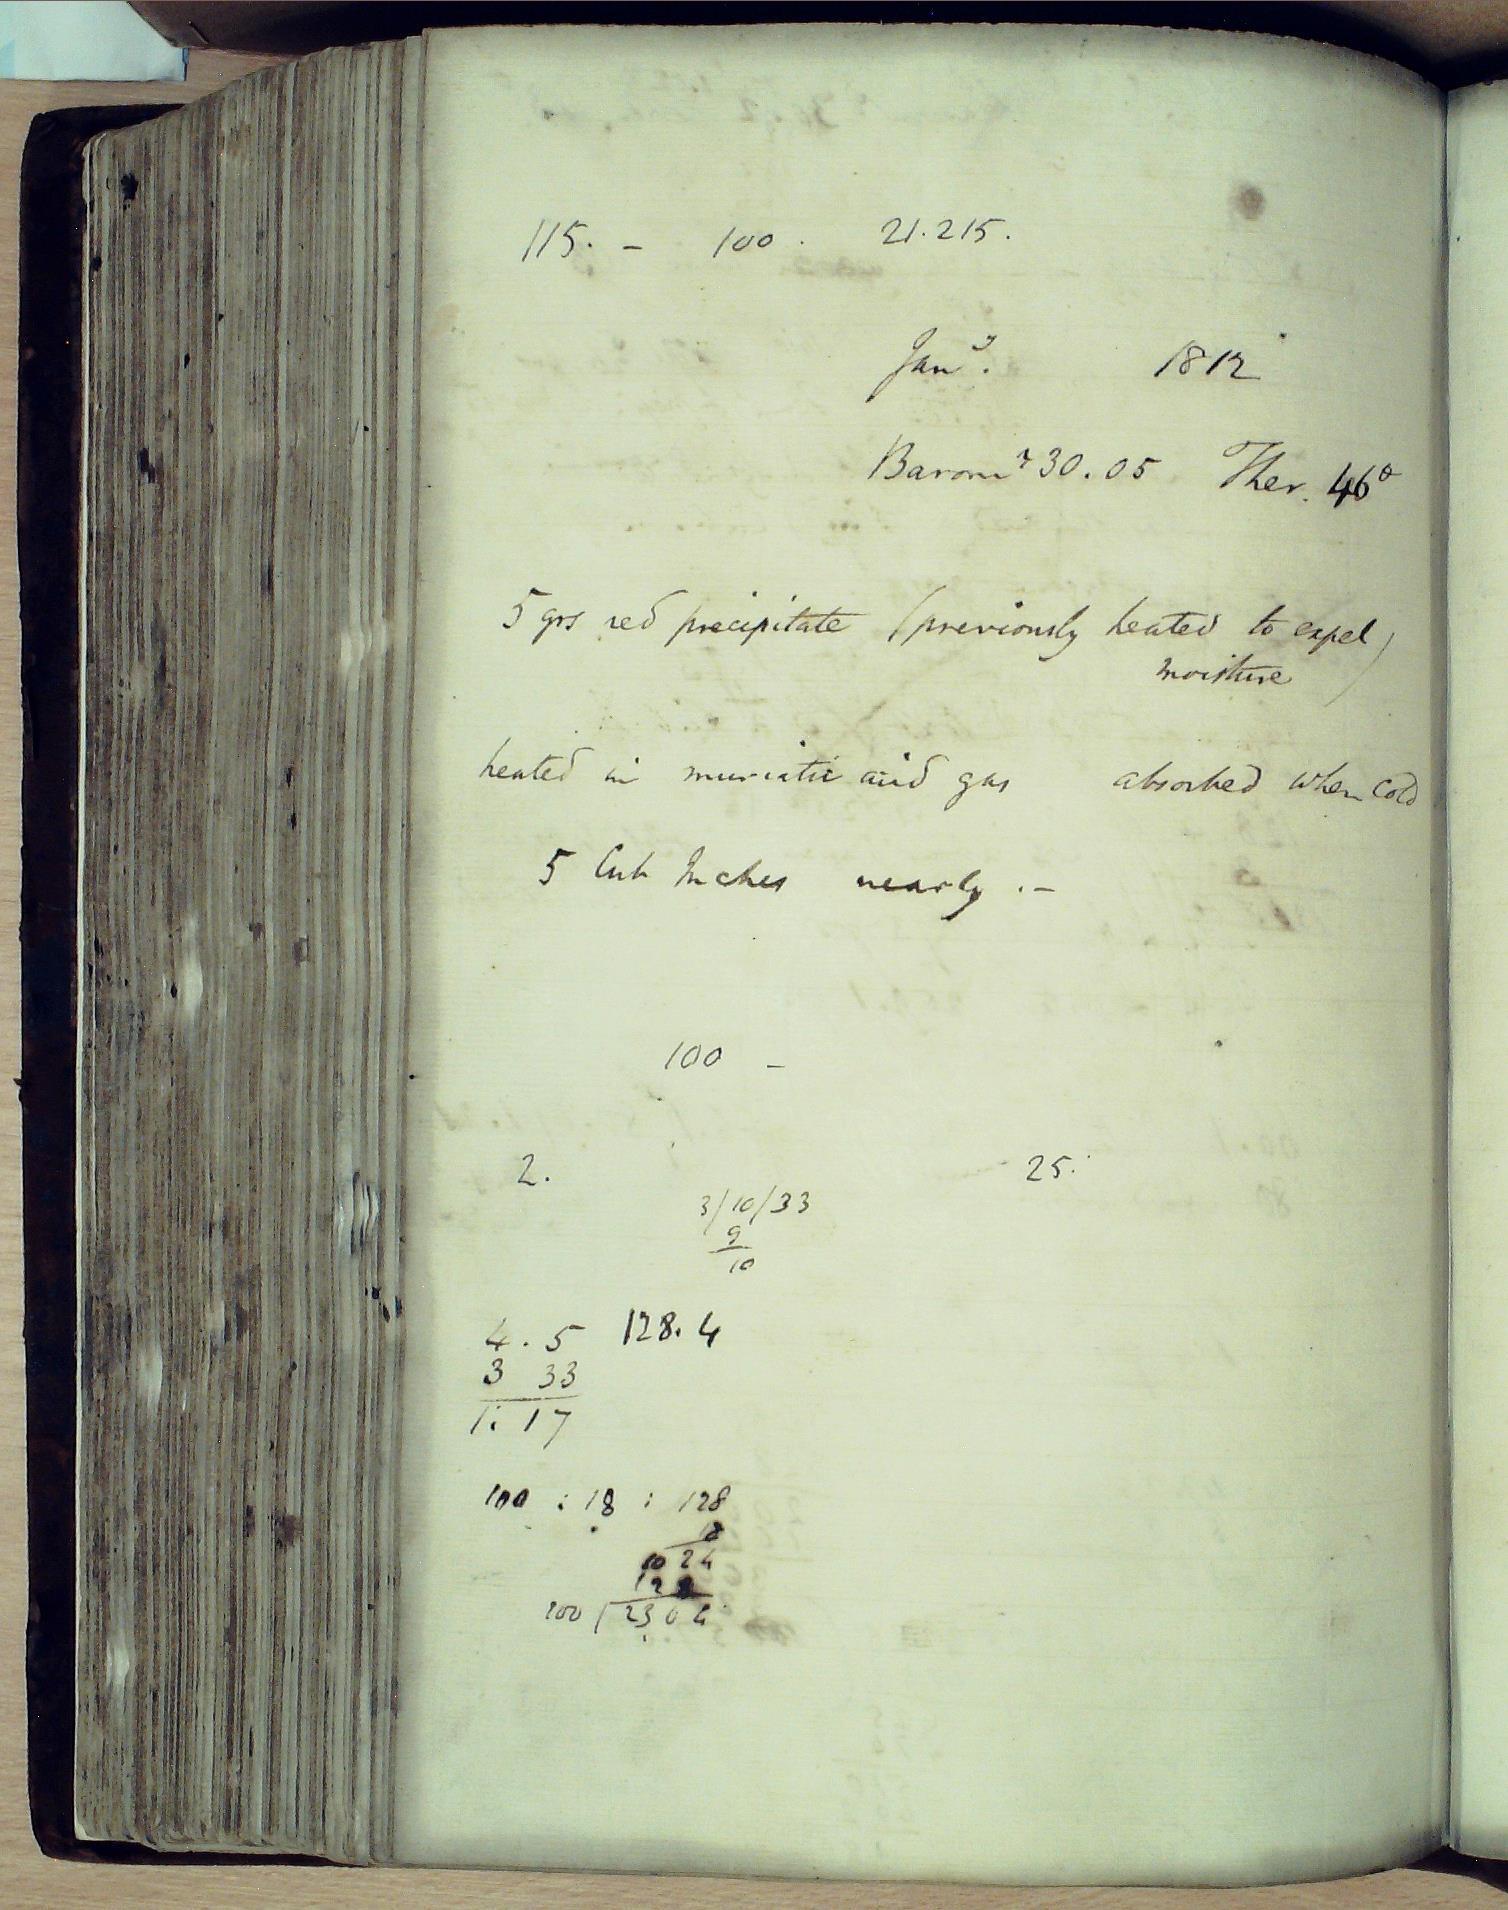 115. - 100. 21.215.
Jany. 1812
Baromr 30.05 Ther. 46°
5 grs red precipitate (previously heated to expel
moisture)
heated in muriatic acid gas absorbed when cold
5 Cub Inches nearly .-
100 -
2. 25.
3/10/33
9
10
4.5 128.4
3 33
1.17
100 : 18 : 128
18
1024
128
100 / 2304